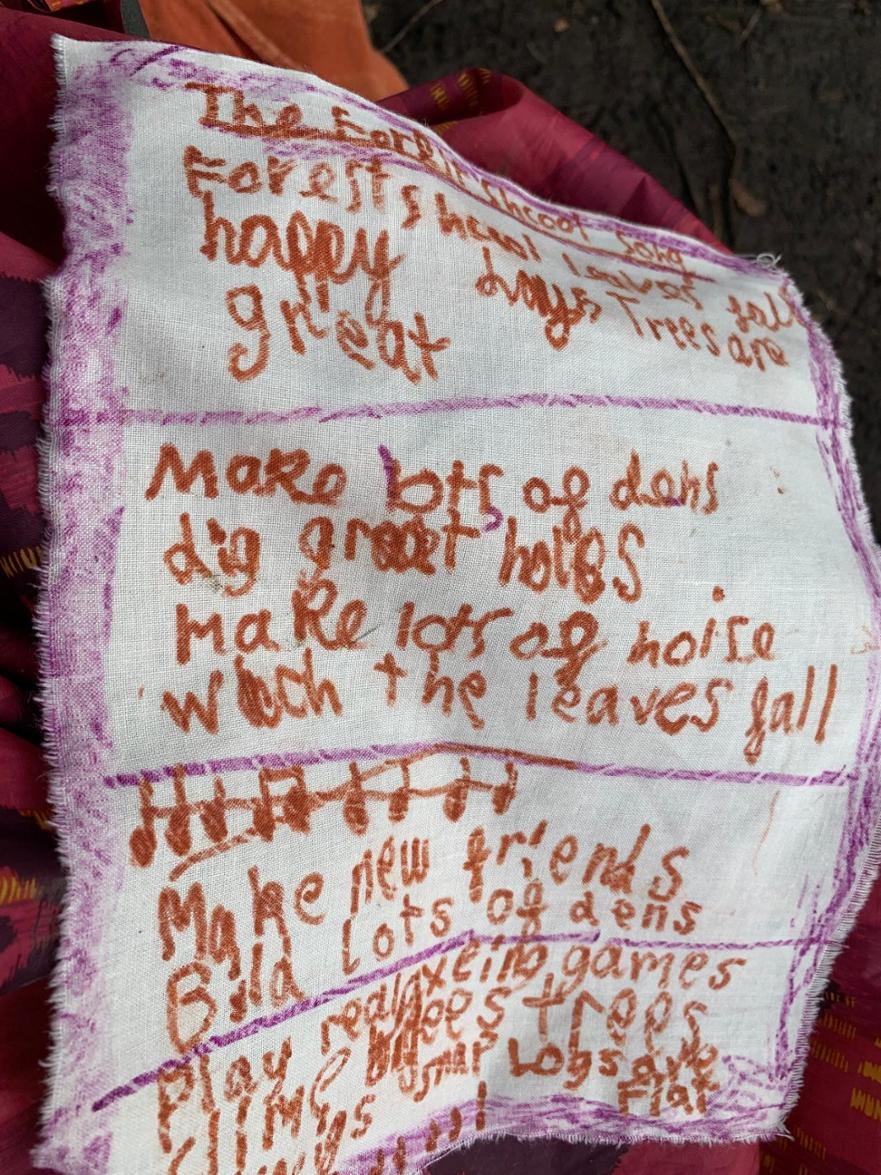 The Forest Shcool Song
Forest shcool leaves fall
happy days Trees are
great
Make lots of dens
dig great holes
Make lots of noise
wach the leaves fall
Make new friends
Bild lots of dens
Play realaxeing games
clime trees
snap Logs
Flat